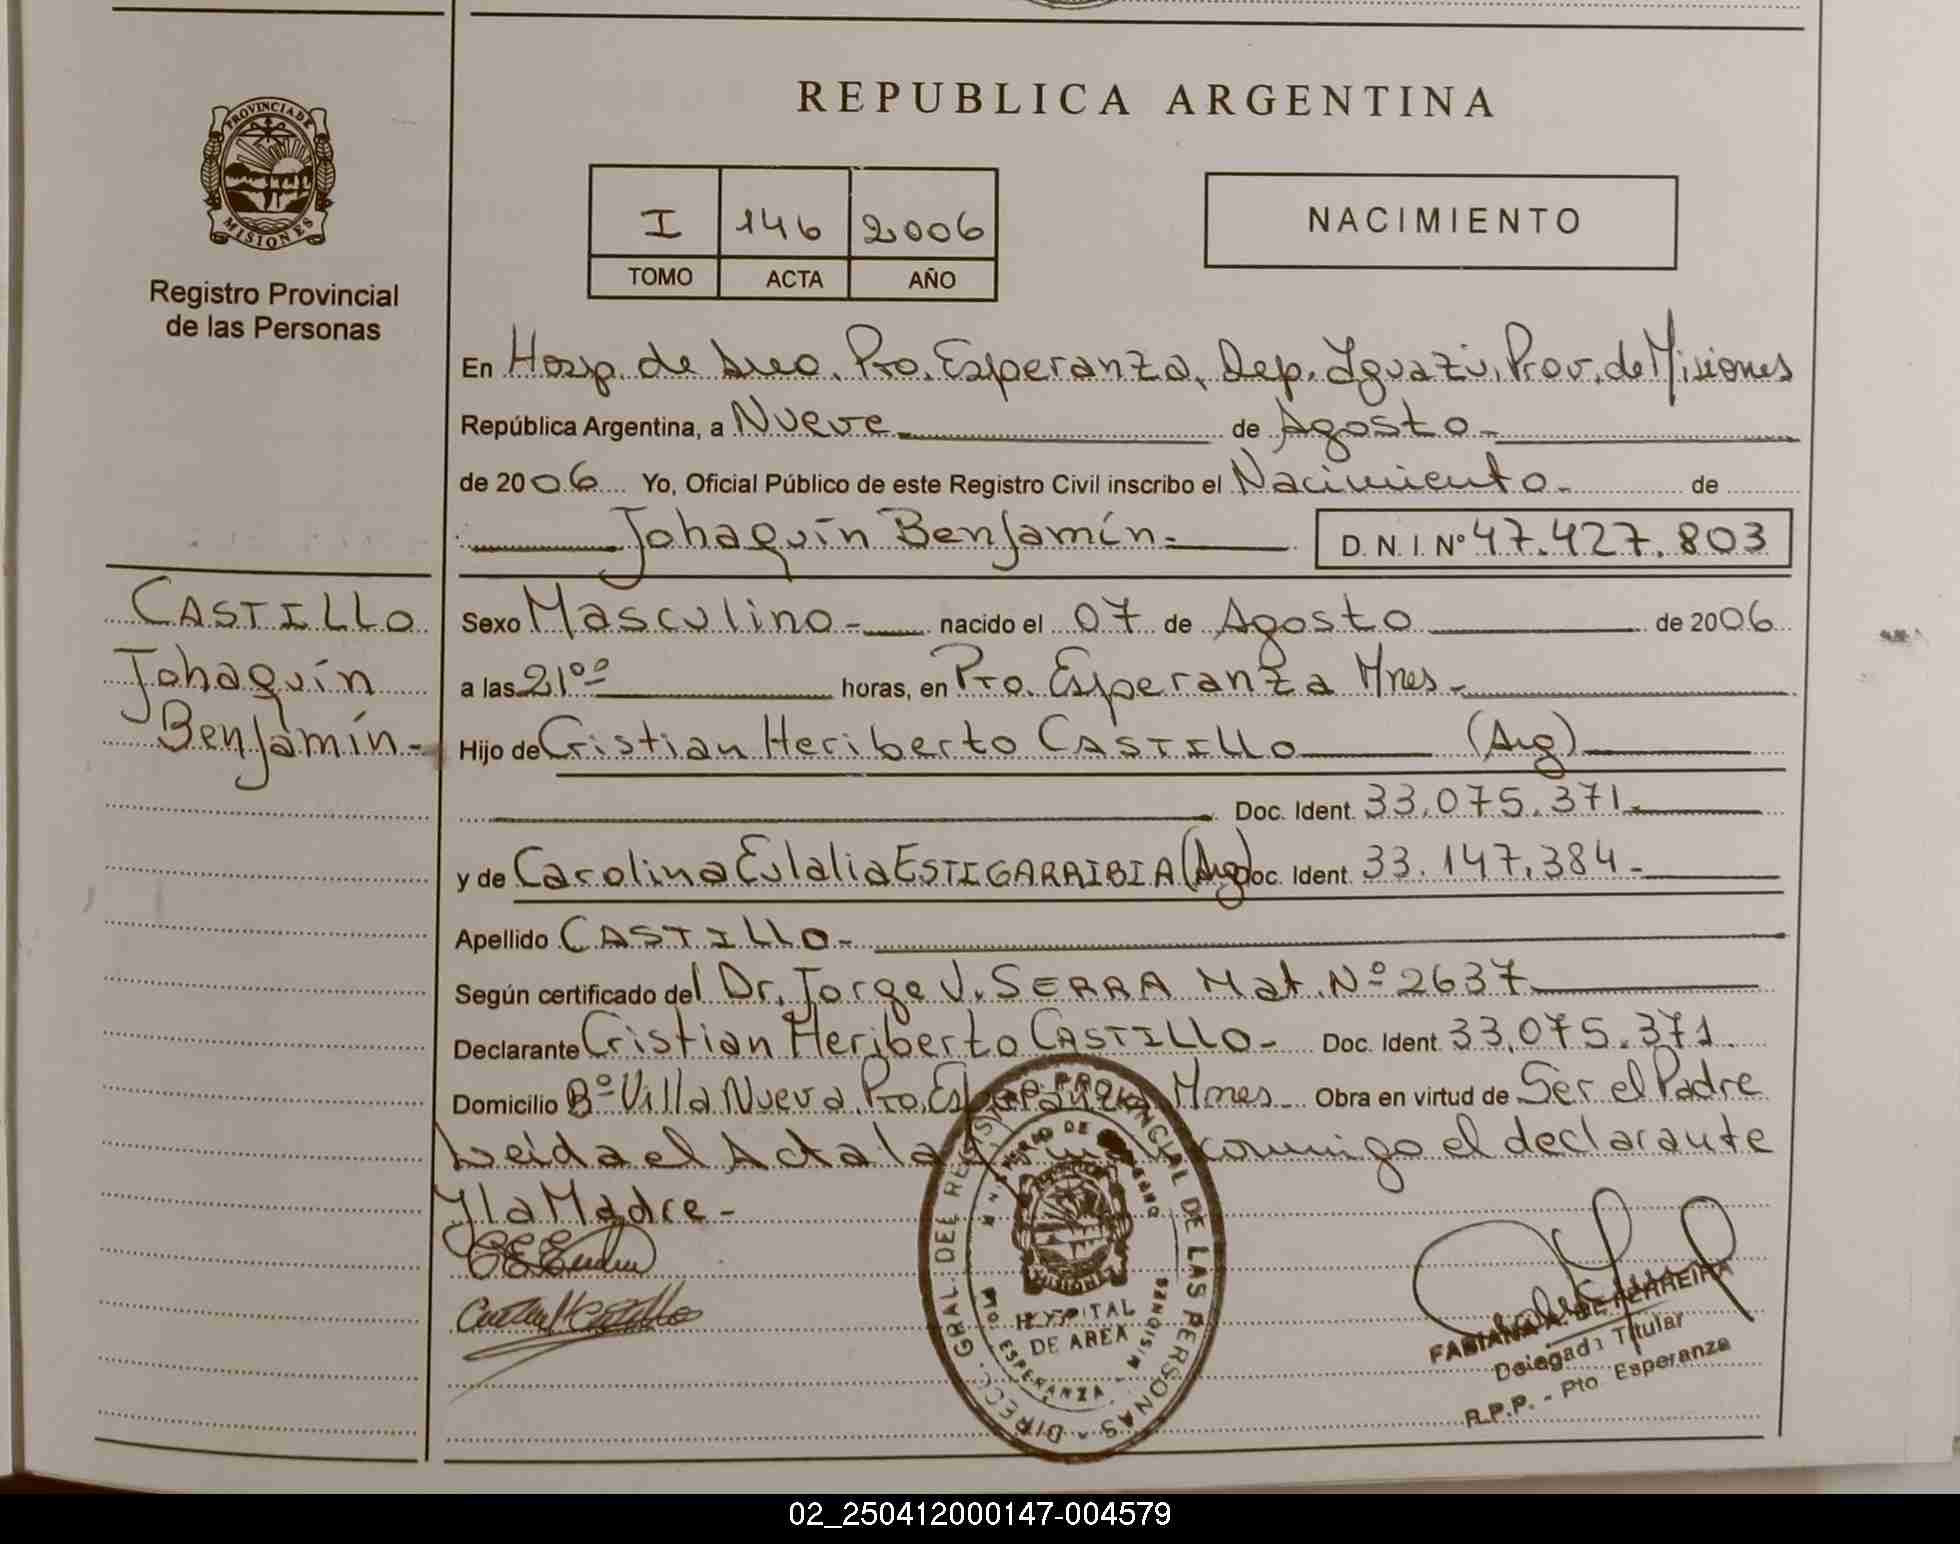 REPUBLICA ARGENTINA
PROVINCIA DE MISIONES
Registro Provincial
de las Personas
I 146 2006
TOMO ACTA AÑO
NACIMIENTO
En Hosp. de Area. Pto. Esperanza, Dep. Iguazú, Prov. de Misiones
República Argentina, a Nueve de Agosto
de 2006 Yo, Oficial Público de este Registro Civil inscribo el Nacimiento de
Johaquín Benjamín D.N.I. Nº 47.427.803
CASTILLO
Johaquín
Benjamín
Sexo Masculino nacido el 07 de Agosto de 2006
a las 21ºº horas, en Pto. Esperanza Mnes
Hijo de Cristian Heriberto CASTILLO (Arg)
Doc. Ident. 33.075.371
y de Carolina Eulalia ESTIGARRIBIA (Arg) Doc. Ident. 33.147.384
Apellido CASTILLO
Según certificado del Dr. Jorge J. SERRA Mat. Nº 2637
Declarante Cristian Heriberto CASTILLO Doc. Ident. 33.075.371
Domicilio Bº Villa Nueva Pto. Esperanza Mnes Obra en virtud de Ser el Padre
Leida el Acta la conmigo el declarante
Y la Madre
DIRECC. GRAL. DEL REGISTRO PROVINCIAL DE LAS PERSONAS
MINISTERIO DE
HOSPITAL
DE AREA
PTO ESPERANZA - MISIONES
FABIANA A. DE FERREIRA
Delegada Titular
R.P.P. - Pto Esperanza
02_250412000147-004579